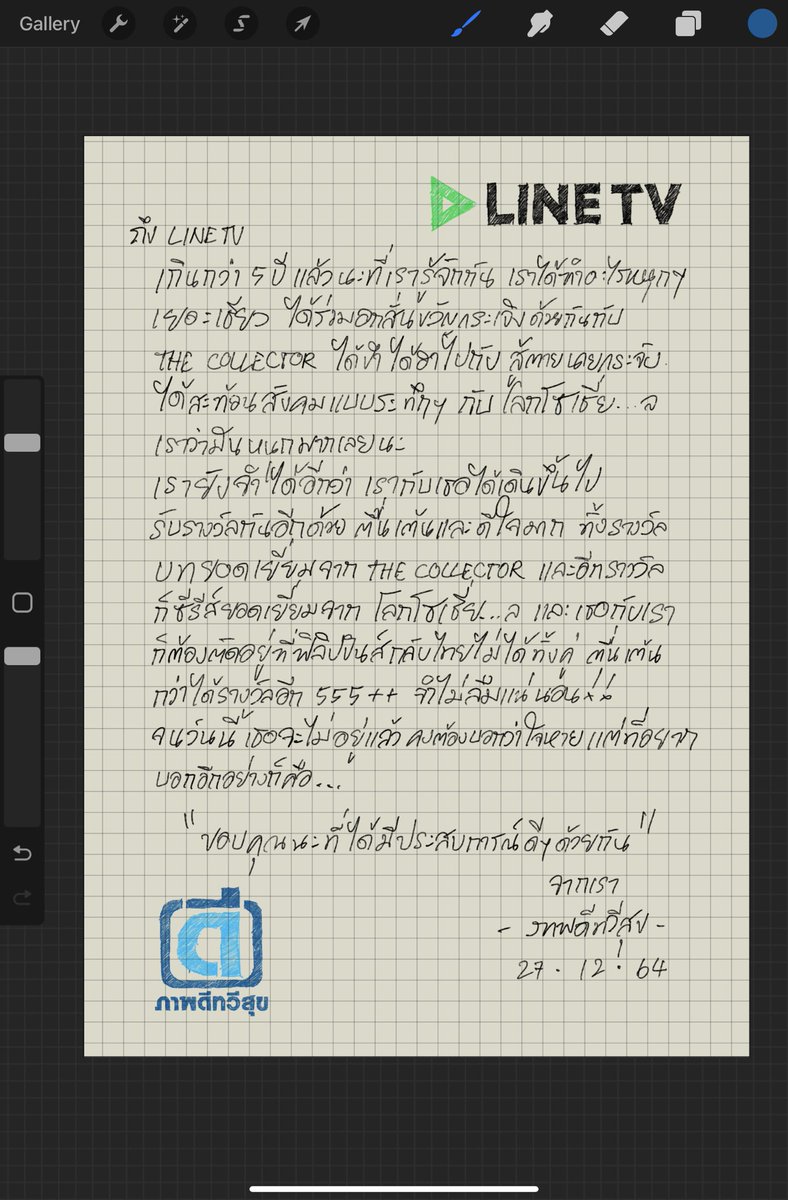 Gallery
LINE TV
ถึง LINE TV
เกินกว่า 5 ปี แล้วนะที่เรารู้จักกัน เราได้ทำอะไรหนุกๆ
เยอะเชียว ได้ร่วมอกสั่นขวัญกระเจิงด้วยกันกับ
THE COLLECTOR ได้ขำ ได้ฮาไปกับ สู้ตายนายกระจับ
ได้สะท้อนสังคมแบบระทึกๆ กับ โลกโซเชี่ย...ล
เราว่ามันหนุกมากเลยนะ
เรายังจำได้อีกว่า เรากับเธอได้เดินขึ้นไป
รับรางวัลกันอีกด้วย ตื่นเต้นและดีใจมาก ทั้งรางวัล
บทยอดเยี่ยมจาก THE COLLECTOR และอีกรางวัล
ก็ซีรีส์ยอดเยี่ยมจาก โลกโซเชี่ย...ล และเธอกับเรา
ก็ต้องติดอยู่ที่ฟิลิปปินส์กลับไทยไม่ได้ทั้งคู่ ตื่นเต้น
กว่าได้รางวัลอีก 555++ จำไม่ลืมแน่นอน
จนวันนี้ เธอจะไม่อยู่แล้ว คงต้องบอกว่าใจหาย แต่ที่อยาก
บอกอีกอย่างก็คือ...
"ขอบคุณนะที่ได้มีประสบการณ์ดีๆด้วยกัน"
จากเรา
- ภาพดีทวีสุข -
27.12.64
ภาพดีทวีสุข